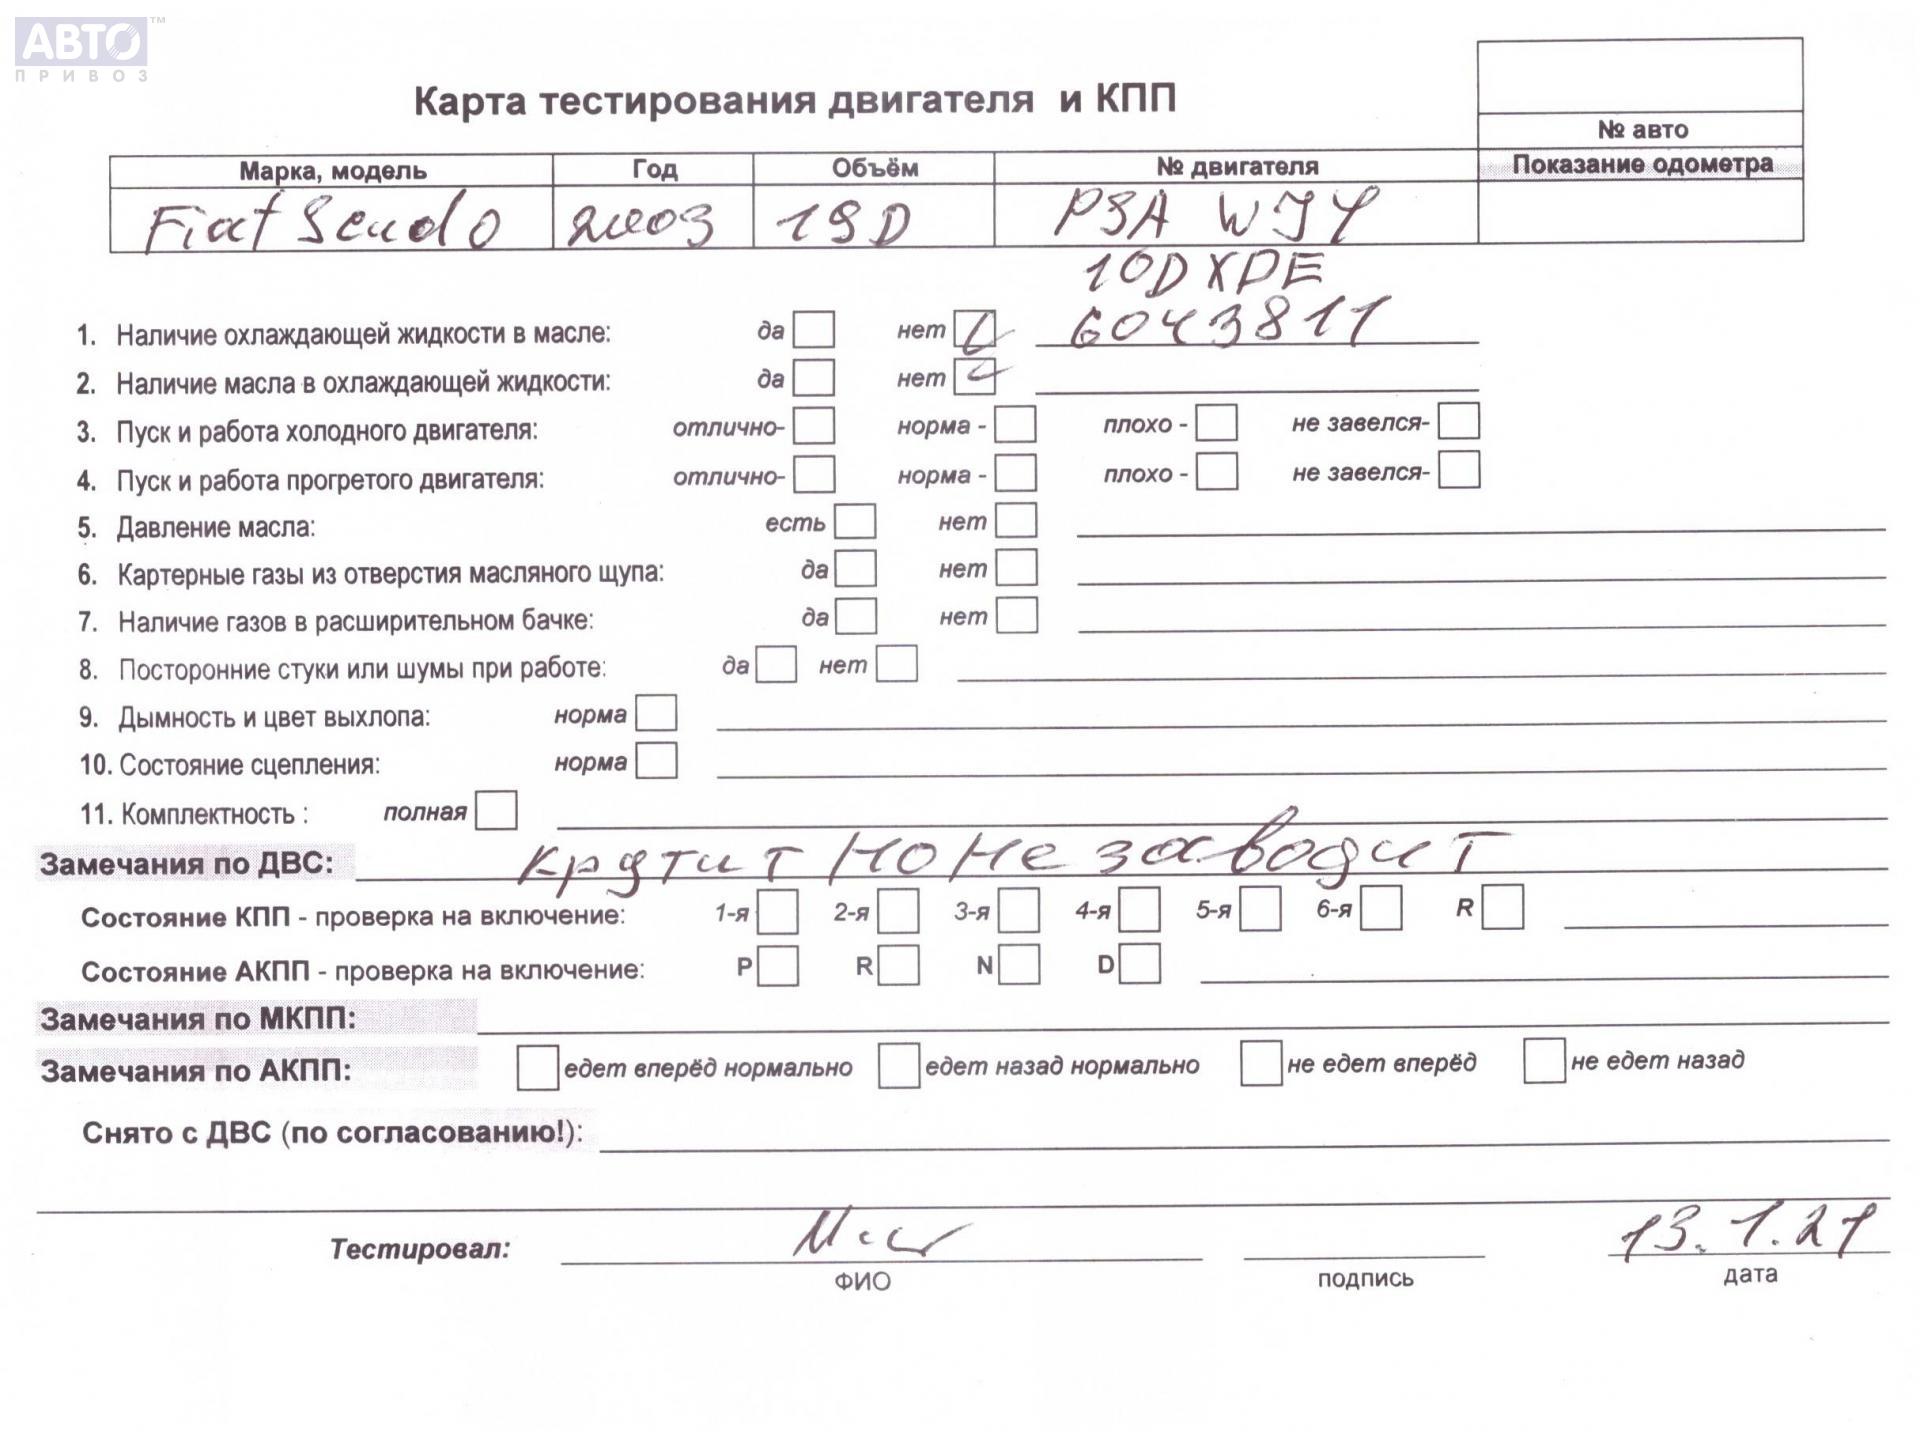 АВТО™
ПРИВОЗ
Карта тестирования двигателя и КПП
№ авто
Марка, модель Год Объём № двигателя Показание одометра
Fiat Scudo 2003 19D PSA WJY
10DXDE
1. Наличие охлаждающей жидкости в масле: да нет 6043811
2. Наличие масла в охлаждающей жидкости: да нет
3. Пуск и работа холодного двигателя: отлично- норма - плохо - не завелся-
4. Пуск и работа прогретого двигателя: отлично- норма - плохо - не завелся-
5. Давление масла: есть нет
6. Картерные газы из отверстия масляного щупа: да нет
7. Наличие газов в расширительном бачке: да нет
8. Посторонние стуки или шумы при работе: да нет
9. Дымность и цвет выхлопа: норма
10. Состояние сцепления: норма
11. Комплектность : полная
Замечания по ДВС: крутит но не заводит
Состояние КПП - проверка на включение: 1-я 2-я 3-я 4-я 5-я 6-я R
Состояние АКПП - проверка на включение: P R N D
Замечания по МКПП:
Замечания по АКПП: едет вперёд нормально едет назад нормально не едет вперёд не едет назад
Снято с ДВС (по согласованию!):
Тестировал: 13.1.21
ФИО подпись дата